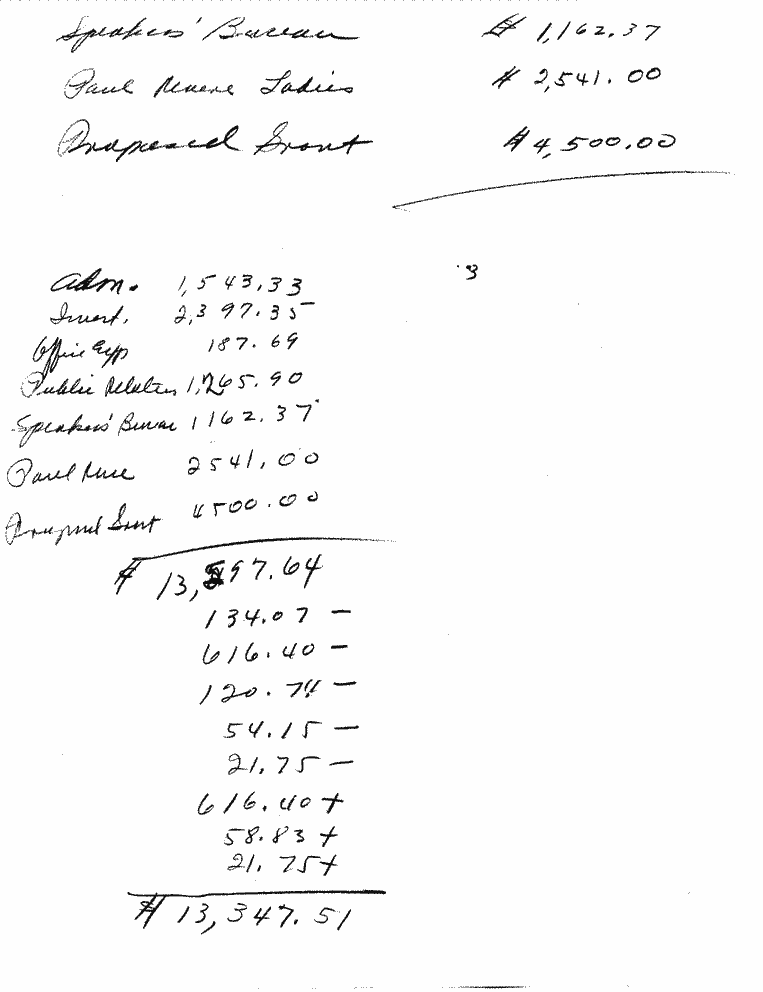 Speakers' Bureau $ 1,162.37
Paul Revere Ladies $ 2,541.00
Proposed Grant $ 4,500.00
Adm. 1,543.33
Invest. 2,397.35
Office Exp 187.69
Public Relations 1,265.90
Speakers' Bureau 1162.37
Paul Revere 2541.00
Proposed Grant 4500.00
$ 13,597.64
134.07 -
616.40 -
120.74 -
54.15 -
21.75 -
616.40 +
58.83 +
21.75 +
$ 13,347.51